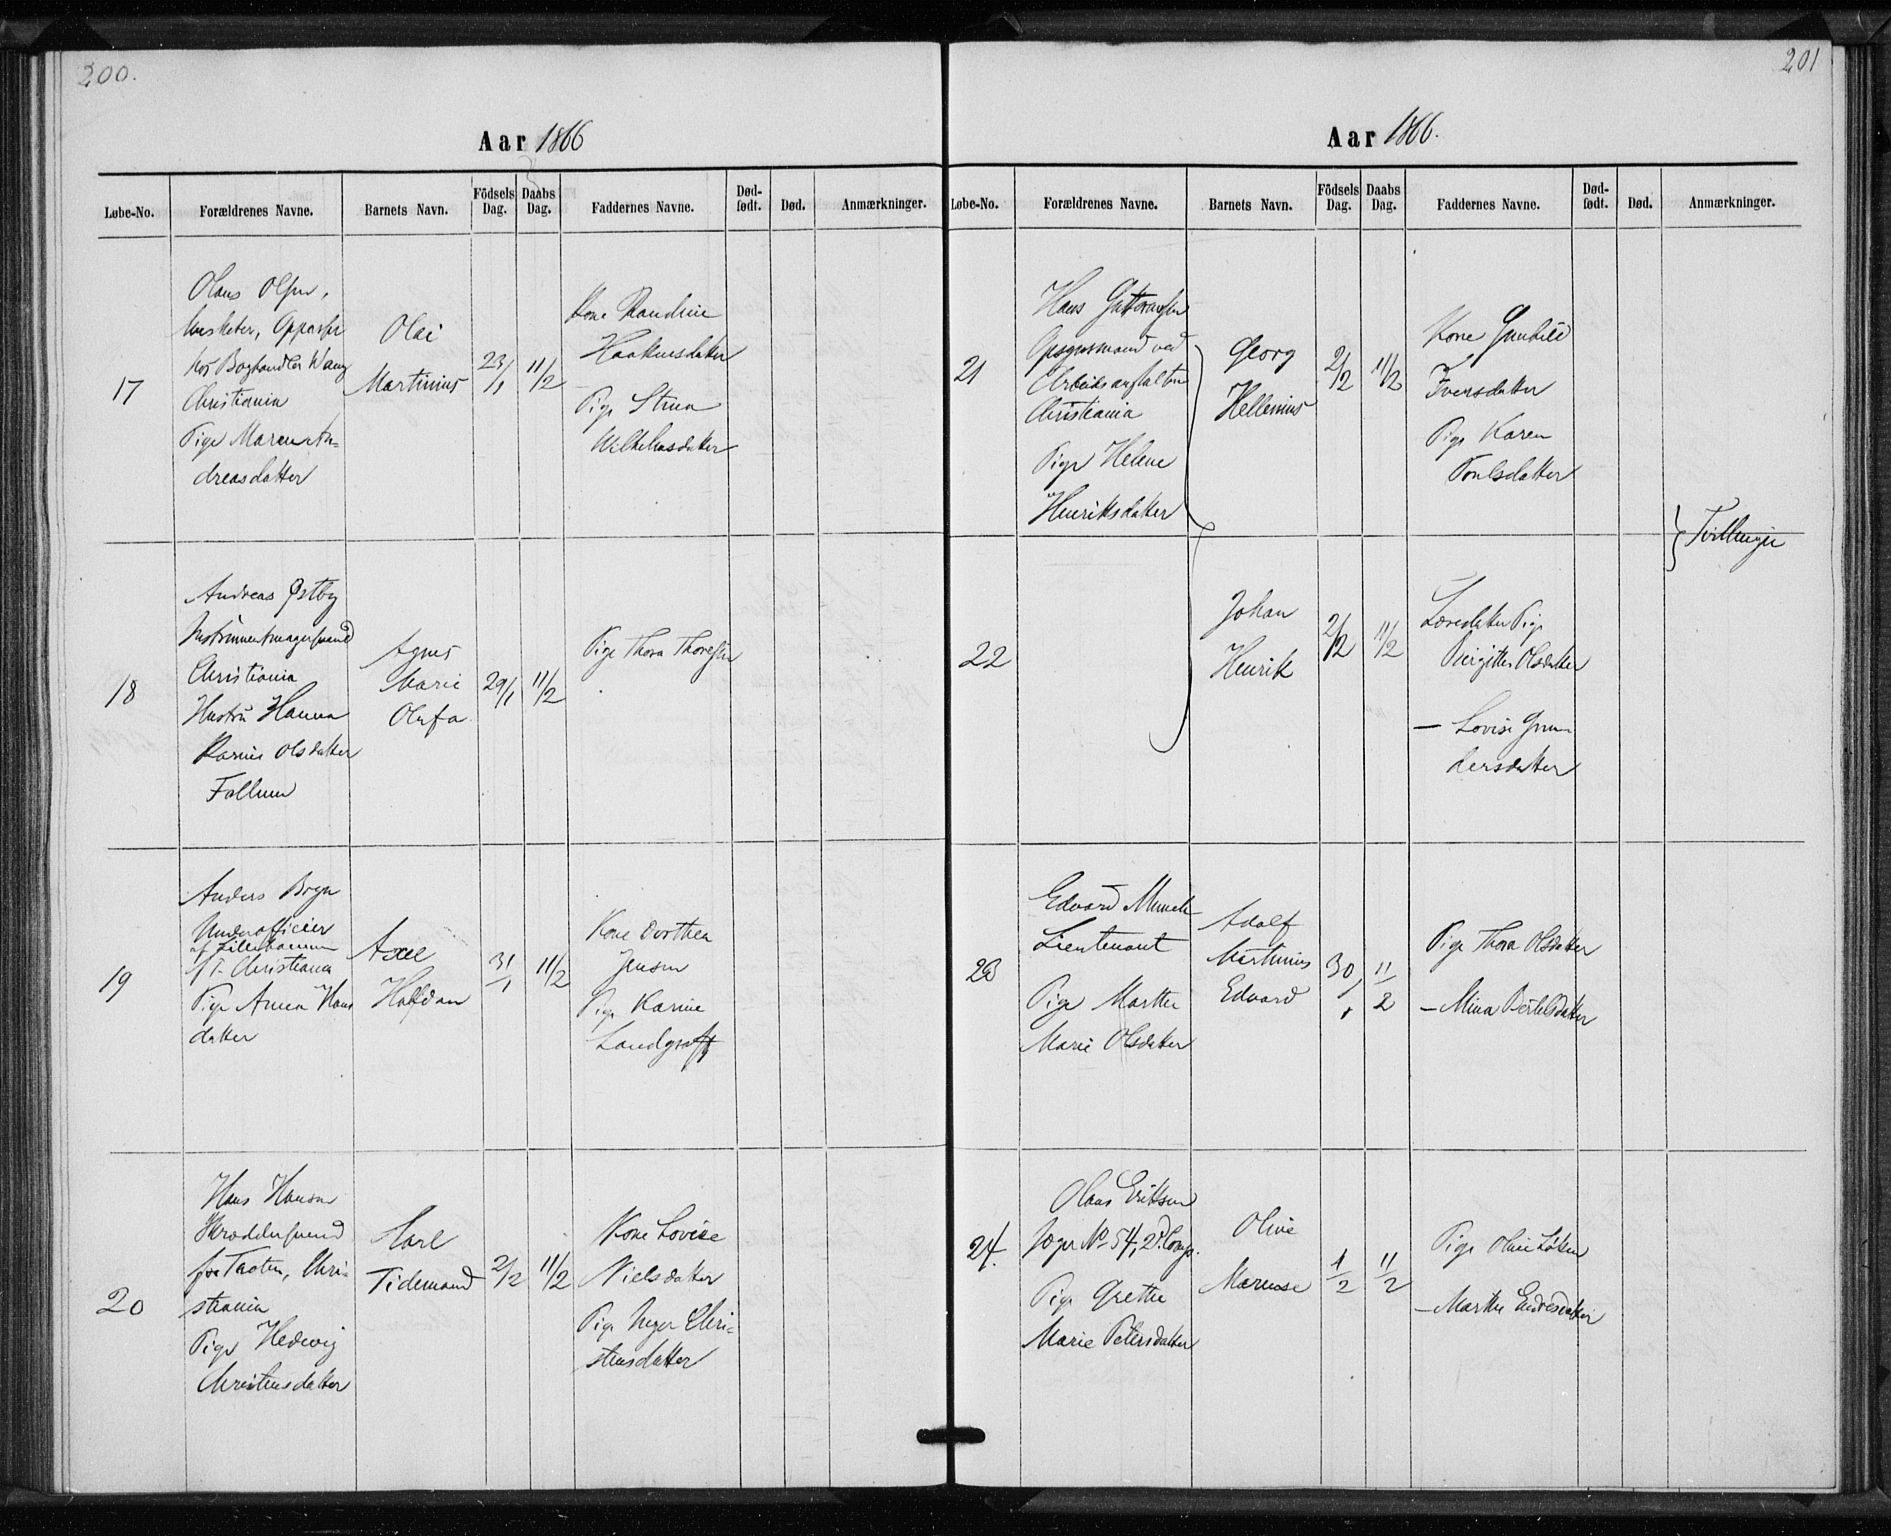 200.
Aar 1866
Løbe-No. Forældrenes Navne. Barnets Navn. Födsels Dag. Daabs Dag. Faddernes Navne. Død-født. Død. Anmærkninger.
17
Olaus Olsen,
Musketer, Oppasser
hos Boghandler Wang
Christiania
Pige Maren An-
dreasdatter
Olai
Martinius
23/1
11/2
Kone Randine
Haakensdatter
Pige Strina
Wilhelmsdatter
18
Andreas Østby
Instrumentmagersvend
Christiania
Hustru Hanna
Karine Olsdatter
Follum
Agnes
Marie
Olufa
29/1
11/2
Pige Thora Thoresen
19
Anders Bryn
Underofficier
af Lillehammer
p.t. Christiania
Pige Anna Hans
datter
Axel
Halfdan
31/1
11/2
Kone Dorthea
Jensen
Pige Karine
Landgraff
20
Hans Hansen
Skræddersvend
fra Thoten, Chri-
stiania
Pige Hedevig
Christensdatter
Karl
Tidemand
2/2
11/2
Kone Lovise
Nielsdatter
Pige Inger Chri-
stensdatter
201
Aar 1866.
Løbe-No. Forældrenes Navne. Barnets Navn. Födsels Dag. Daabs Dag. Faddernes Navne. Død-født. Død. Anmærkninger.
21
Hans Guttormsen
Opsynsmand ved
Arbeidsanstalten
Christiania
Pige Helene
Henriksdatter
Georg
Hellenius
2/2
11/2
Kone Gunhild
Iversdatter
Pige Karen
Poulsdatter
Tvillinger
22
Johan
Henrik
2/2
11/2
Pige
Birgitte Olsdatter
— Lovise Gun-
dersdatter
23
Edvard Munch
Lieutenant
Pige Marthe
Marie Olsdatter
Adolf
Martinius
Edvard
30/1
11/2
Pige Thora Olsdatter
— Mina Bertelsdatter
24.
Olaus Eriksen
Jæger No 54, 2d. Comp.
Pige Grethe
Marie Petersdatter
Olive
1/2
11/2
Pige Oline Løken
— Marthe Endresdatter